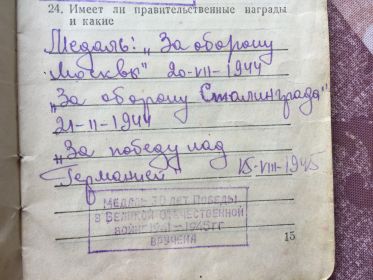 24. Имеет ли правительственные награды
и какие
Медаль: „За оборону
Москвы" 20-VII-1944
„За оборону Сталинграда"
21-II-1944
„За победу над
Германией" 15-VIII-1945
МЕДАЛЬ 30 ЛЕТ ПОБЕДЫ
В ВЕЛИКОЙ ОТЕЧЕСТВЕННОЙ
ВОЙНЕ 1941-1945 ГГ
ВРУЧЕНА
15